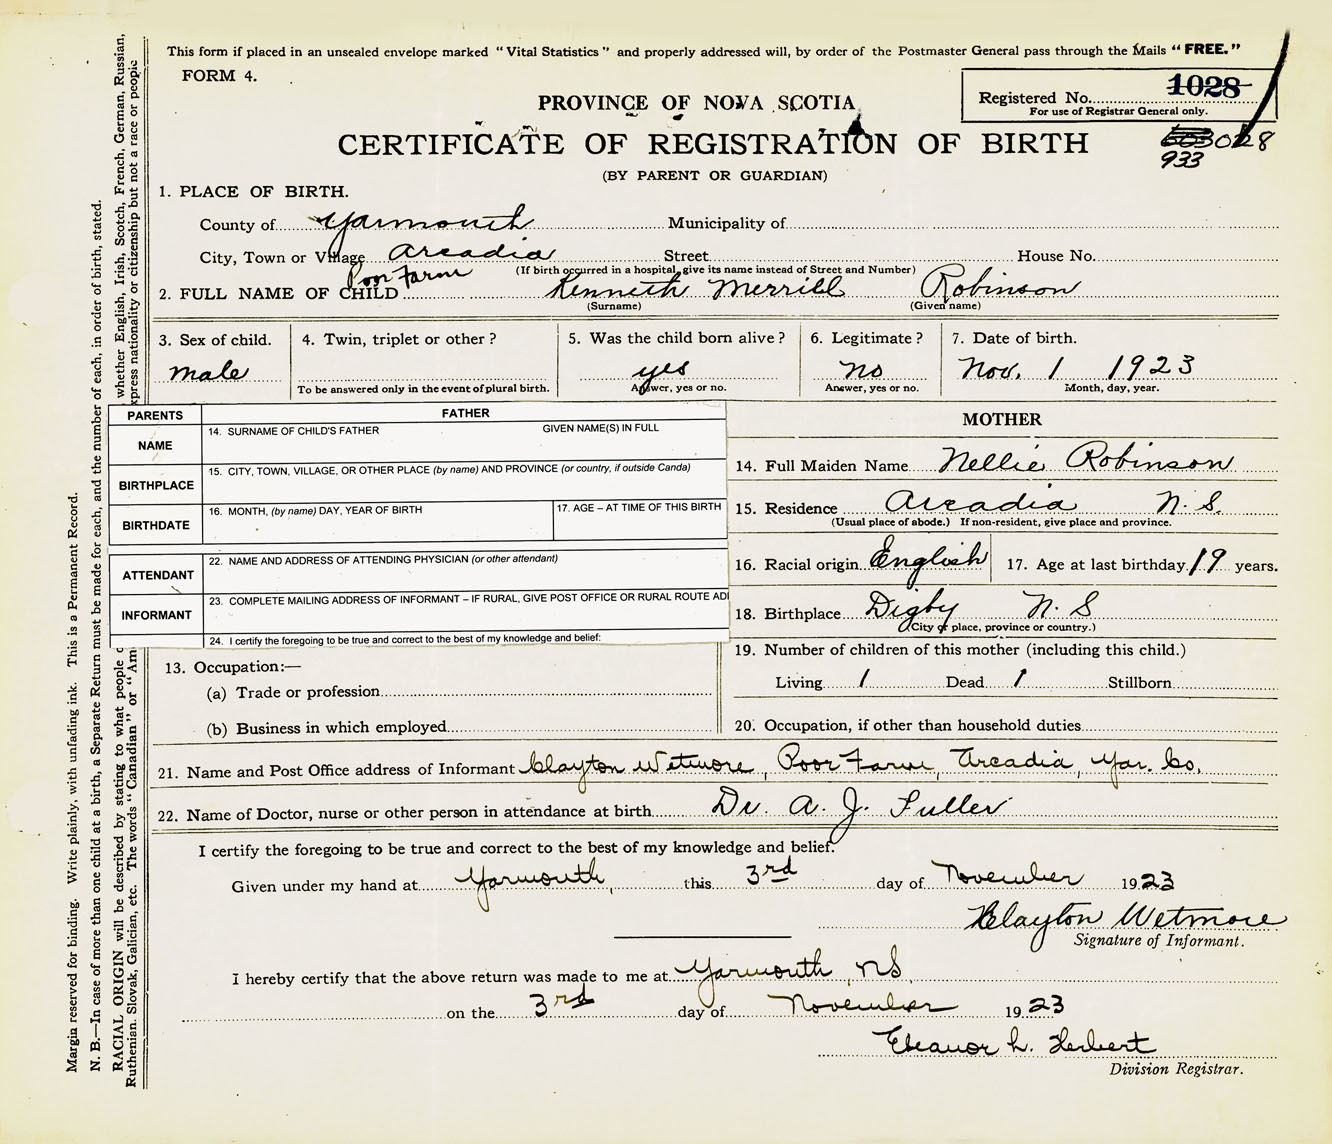 This form if placed in an unsealed envelope marked "Vital Statistics" and properly addressed will, by order of the Postmaster General pass through the Mails "FREE."
FORM 4.
Registered No. 1028
For use of Registrar General only.
PROVINCE OF NOVA SCOTIA
CERTIFICATE OF REGISTRATION OF BIRTH
028
933
(BY PARENT OR GUARDIAN)
1. PLACE OF BIRTH.
County of Yarmouth Municipality of
City, Town or Village Arcadia Street House No.
(If birth occurred in a hospital, give its name instead of Street and Number)
Poor Farm
2. FULL NAME OF CHILD Kenneth Merrill Robinson
(Surname) (Given name)
3. Sex of child. 4. Twin, triplet or other? 5. Was the child born alive? 6. Legitimate? 7. Date of birth.
male yes no Nov. 1 1923
To be answered only in the event of plural birth. Answer, yes or no. Answer, yes or no. Month, day, year.
PARENTS FATHER
NAME
14. SURNAME OF CHILD'S FATHER GIVEN NAME(S) IN FULL
BIRTHPLACE
15. CITY, TOWN, VILLAGE, OR OTHER PLACE (by name) AND PROVINCE (or country, if outside Canda)
BIRTHDATE
16. MONTH, (by name) DAY, YEAR OF BIRTH 17. AGE – AT TIME OF THIS BIRTH
ATTENDANT
22. NAME AND ADDRESS OF ATTENDING PHYSICIAN (or other attendant)
INFORMANT
23. COMPLETE MAILING ADDRESS OF INFORMANT – IF RURAL, GIVE POST OFFICE OR RURAL ROUTE AD
24. I certify the foregoing to be true and correct to the best of my knowledge and belief:
13. Occupation:—
(a) Trade or profession
(b) Business in which employed
MOTHER
14. Full Maiden Name Nellie Robinson
15. Residence Arcadia N. S.
(Usual place of abode.) If non-resident, give place and province.
16. Racial origin English 17. Age at last birthday 19 years.
18. Birthplace Digby N. S
(City or place, province or country.)
19. Number of children of this mother (including this child.)
Living 1 Dead 1 Stillborn
20. Occupation, if other than household duties
21. Name and Post Office address of Informant Clayton Wetmore, Poor Farm, Arcadia, Yar. Co.
22. Name of Doctor, nurse or other person in attendance at birth Dr. A. J. Fuller
I certify the foregoing to be true and correct to the best of my knowledge and belief.
Given under my hand at Yarmouth, this 3rd day of November 1923
Clayton Wetmore
Signature of Informant.
I hereby certify that the above return was made to me at Yarmouth, NS
on the 3rd day of November 1923
Eleanor L. Herbert
Division Registrar.
Margin reserved for binding. Write plainly, with unfading ink. This is a Permanent Record.
N. B.—In case of more than one child at a birth, a Separate Return must be made for each, and the number of each, in order of birth, stated.
RACIAL ORIGIN will be described by stating to what people whether English, Irish, Scotch, French, German, Russian,
Ruthenian, Slovak, Galician, etc. The words "Canadian" or "Am xpress nationality or citizenship but not a race or people